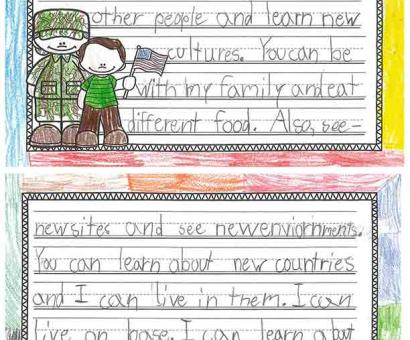 other people and learn new
cultures. You can be
with my family and eat
different food. Also, see-
newsites and see newenviornments.
You can learn about new countries
and I can live in them. I can
live on base. I can learn about